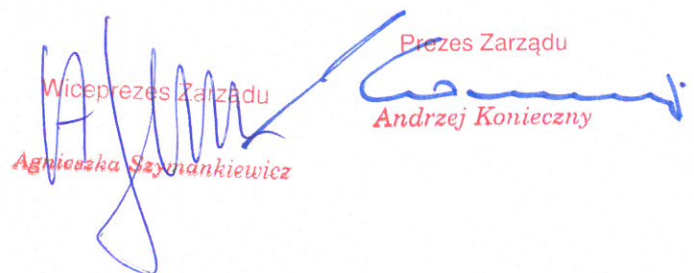 Wiceprezes Zarządu
Agnieszka Szymankiewicz
Prezes Zarządu
Andrzej Konieczny